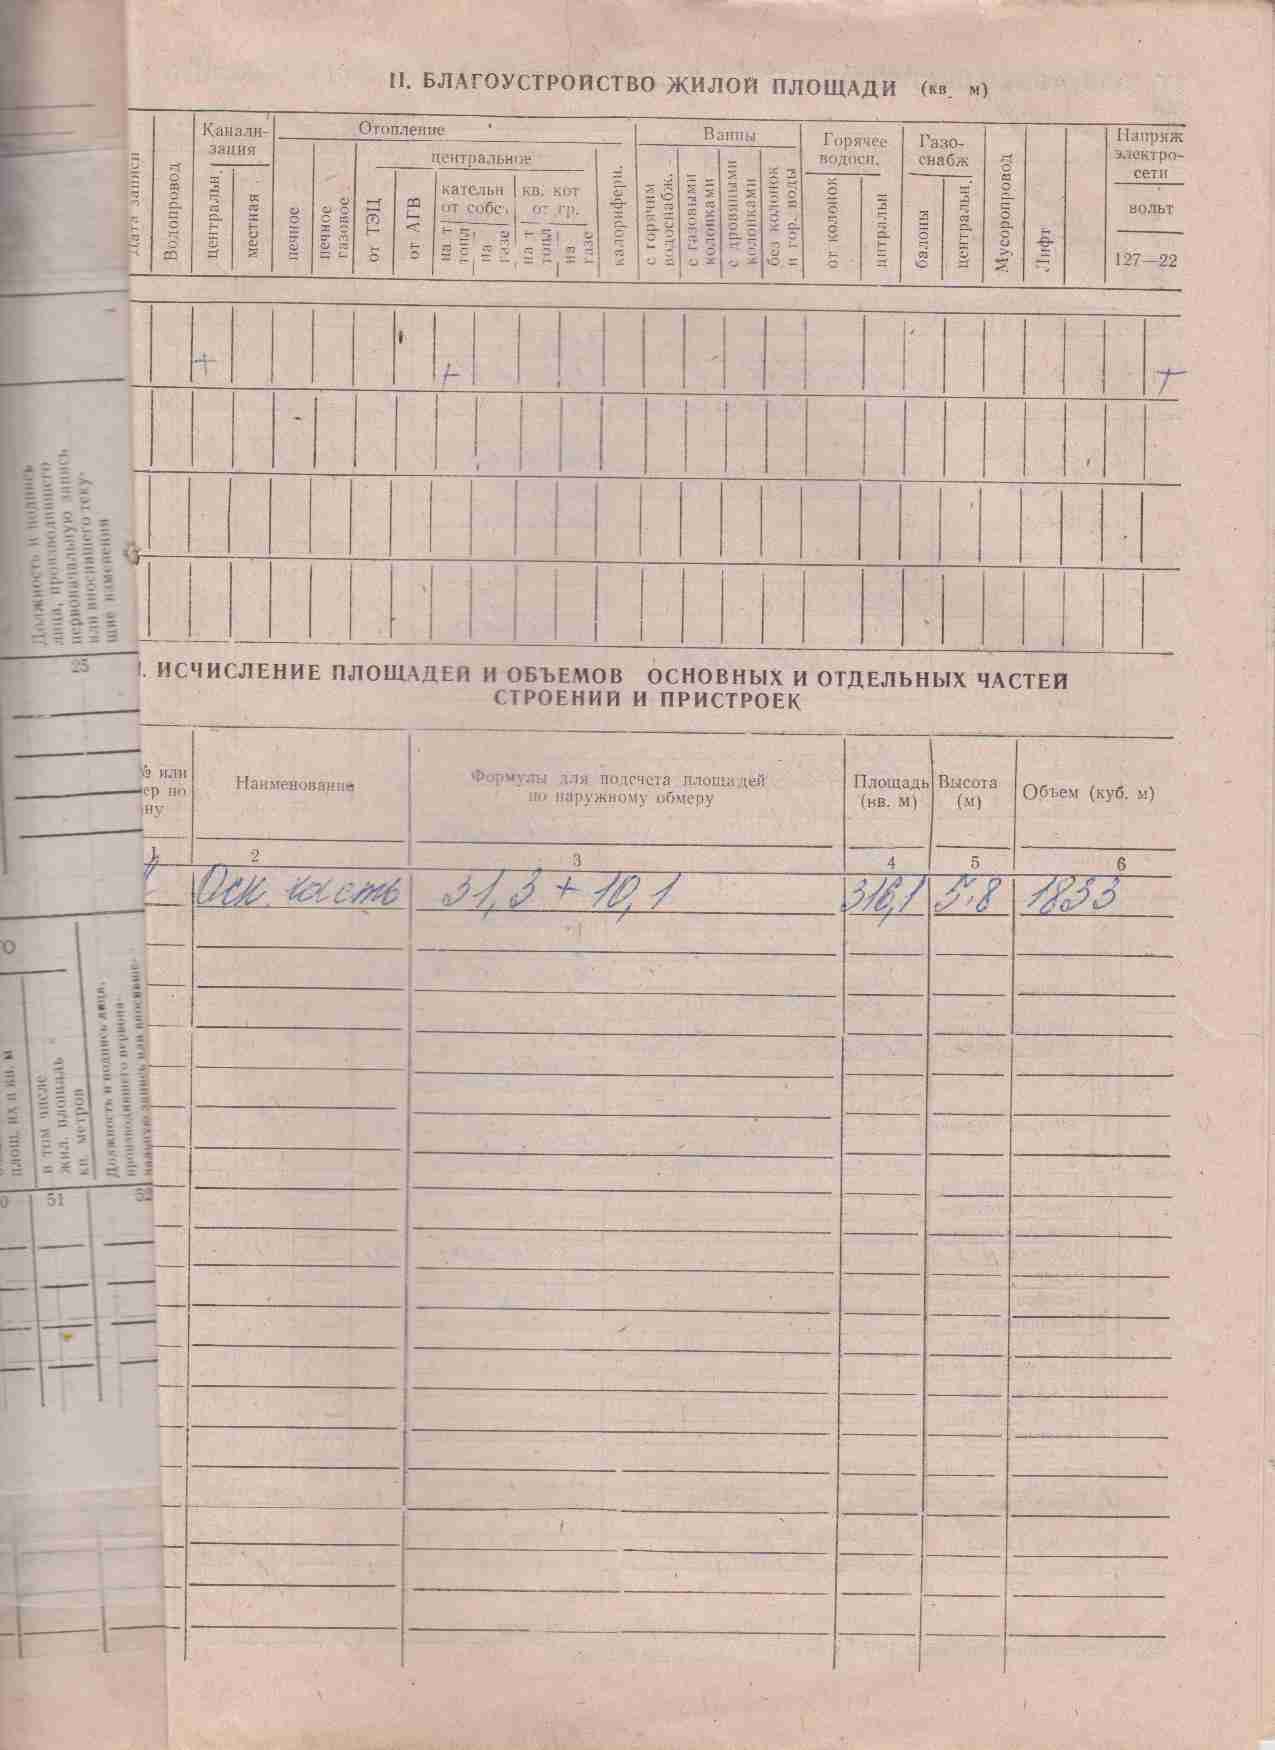 II. БЛАГОУСТРОЙСТВО ЖИЛОЙ ПЛОЩАДИ (кв. м)
Дата записи
Водопровод
Канали-
зация
централн.
местная
Отопление
печное
печное
газовое
центральное
от ТЭЦ
от АГВ
кательн
от собс.
на т
топл
на
газе
кв. кот
от гр.
на т
топл
на
газе
калорифери.
Ванны
с горячим
водоснабж.
с газовыми
колонками
с дровяными
колонками
без колонок
и гор. воды
Горячее
водосн.
от колонок
центральн
Газо-
снабж
балоны
центральн.
Мусоропровод
Лифт
Напряж
электро-
сети
вольт
127—22
+ + +
Должность и подпись
лица, производившего
первоначальную запись
или вносившего теку-
щие изменения
25
I. ИСЧИСЛЕНИЕ ПЛОЩАДЕЙ И ОБЪЕМОВ ОСНОВНЫХ И ОТДЕЛЬНЫХ ЧАСТЕЙ
СТРОЕНИЙ И ПРИСТРОЕК
№ или
ер по
ну
Наименование
Формулы для подсчета площадей
по наружному обмеру
Площадь
(кв. м)
Высота
(м)
Объем (куб. м)
1 2 3 4 5 6
Осн. часть 31,3 + 10,1 316,1 5.8 1833
площ. их в кв. м
в том числе
жил. площадь
кв. метров
Должность и подпись лица,
производившего первона-
чальную запись или вносивше-
0 51 52